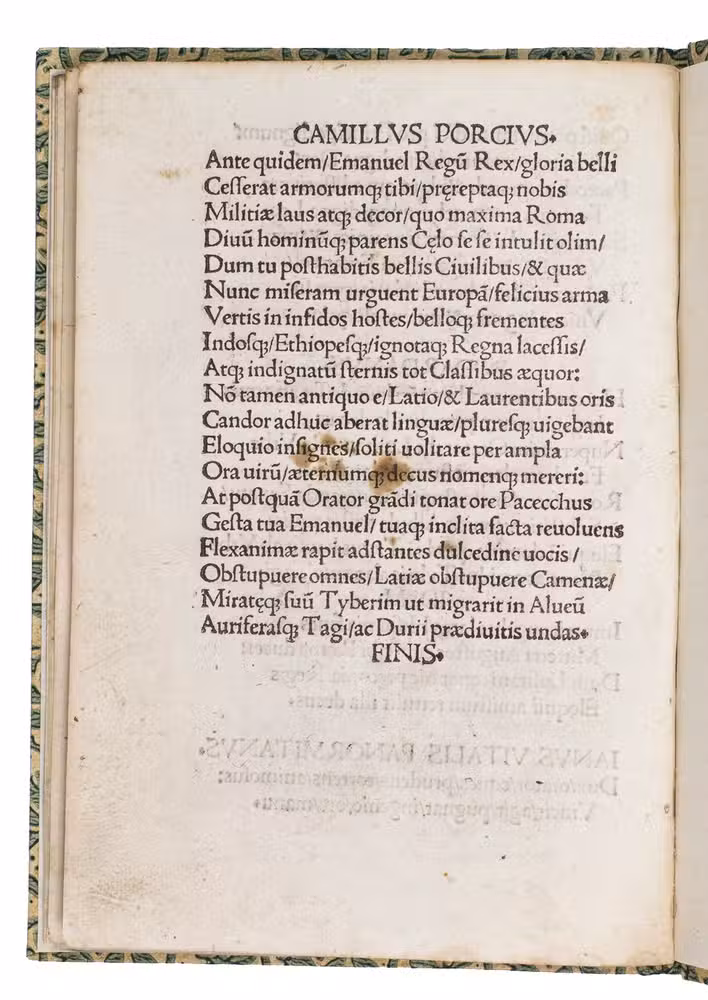 CAMILLVS PORCIVS.
Ante quidem/Emanuel Regũ Rex/gloria belli
Cesserat armorumqꝫ tibi/pręreptaqꝫ nobis
Militiæ laus atqꝫ decor/quo maxima Roma
Diuũ hominũqꝫ parens Cęlo se se intulit olim/
Dum tu posthabitis bellis Ciuilibus/& quæ
Nunc miseram urguent Europã/felicius arma
Vertis in infidos hostes/belloqꝫ frementes
Indosqꝫ/Ethiopesqꝫ/ignotaqꝫ Regna lacessis/
Atqꝫ indignatũ sternis tot Classibus æquor:
Nõ tamen antiquo e/Latio/& Laurentibus oris
Candor adhuc aberat linguæ/pluresqꝫ uigebant
Eloquio insignes/soliti uolitare per ampla
Ora uirũ/æternumqꝫ decus nomenqꝫ mereri:
At postquã Orator grãdi tonat ore Pacecchus
Gesta tua Emanuel/tuaqꝫ inclita facta reuoluens
Flexanimæ rapit adstantes dulcedine uocis/
Obstupuere omnes/Latiæ obstupuere Camenæ/
Miratęqꝫ suũ Tyberim ut migrarit in Alueũ
Auriferasqꝫ Tagi/ac Durii prædiuitis undas.
FINIS.